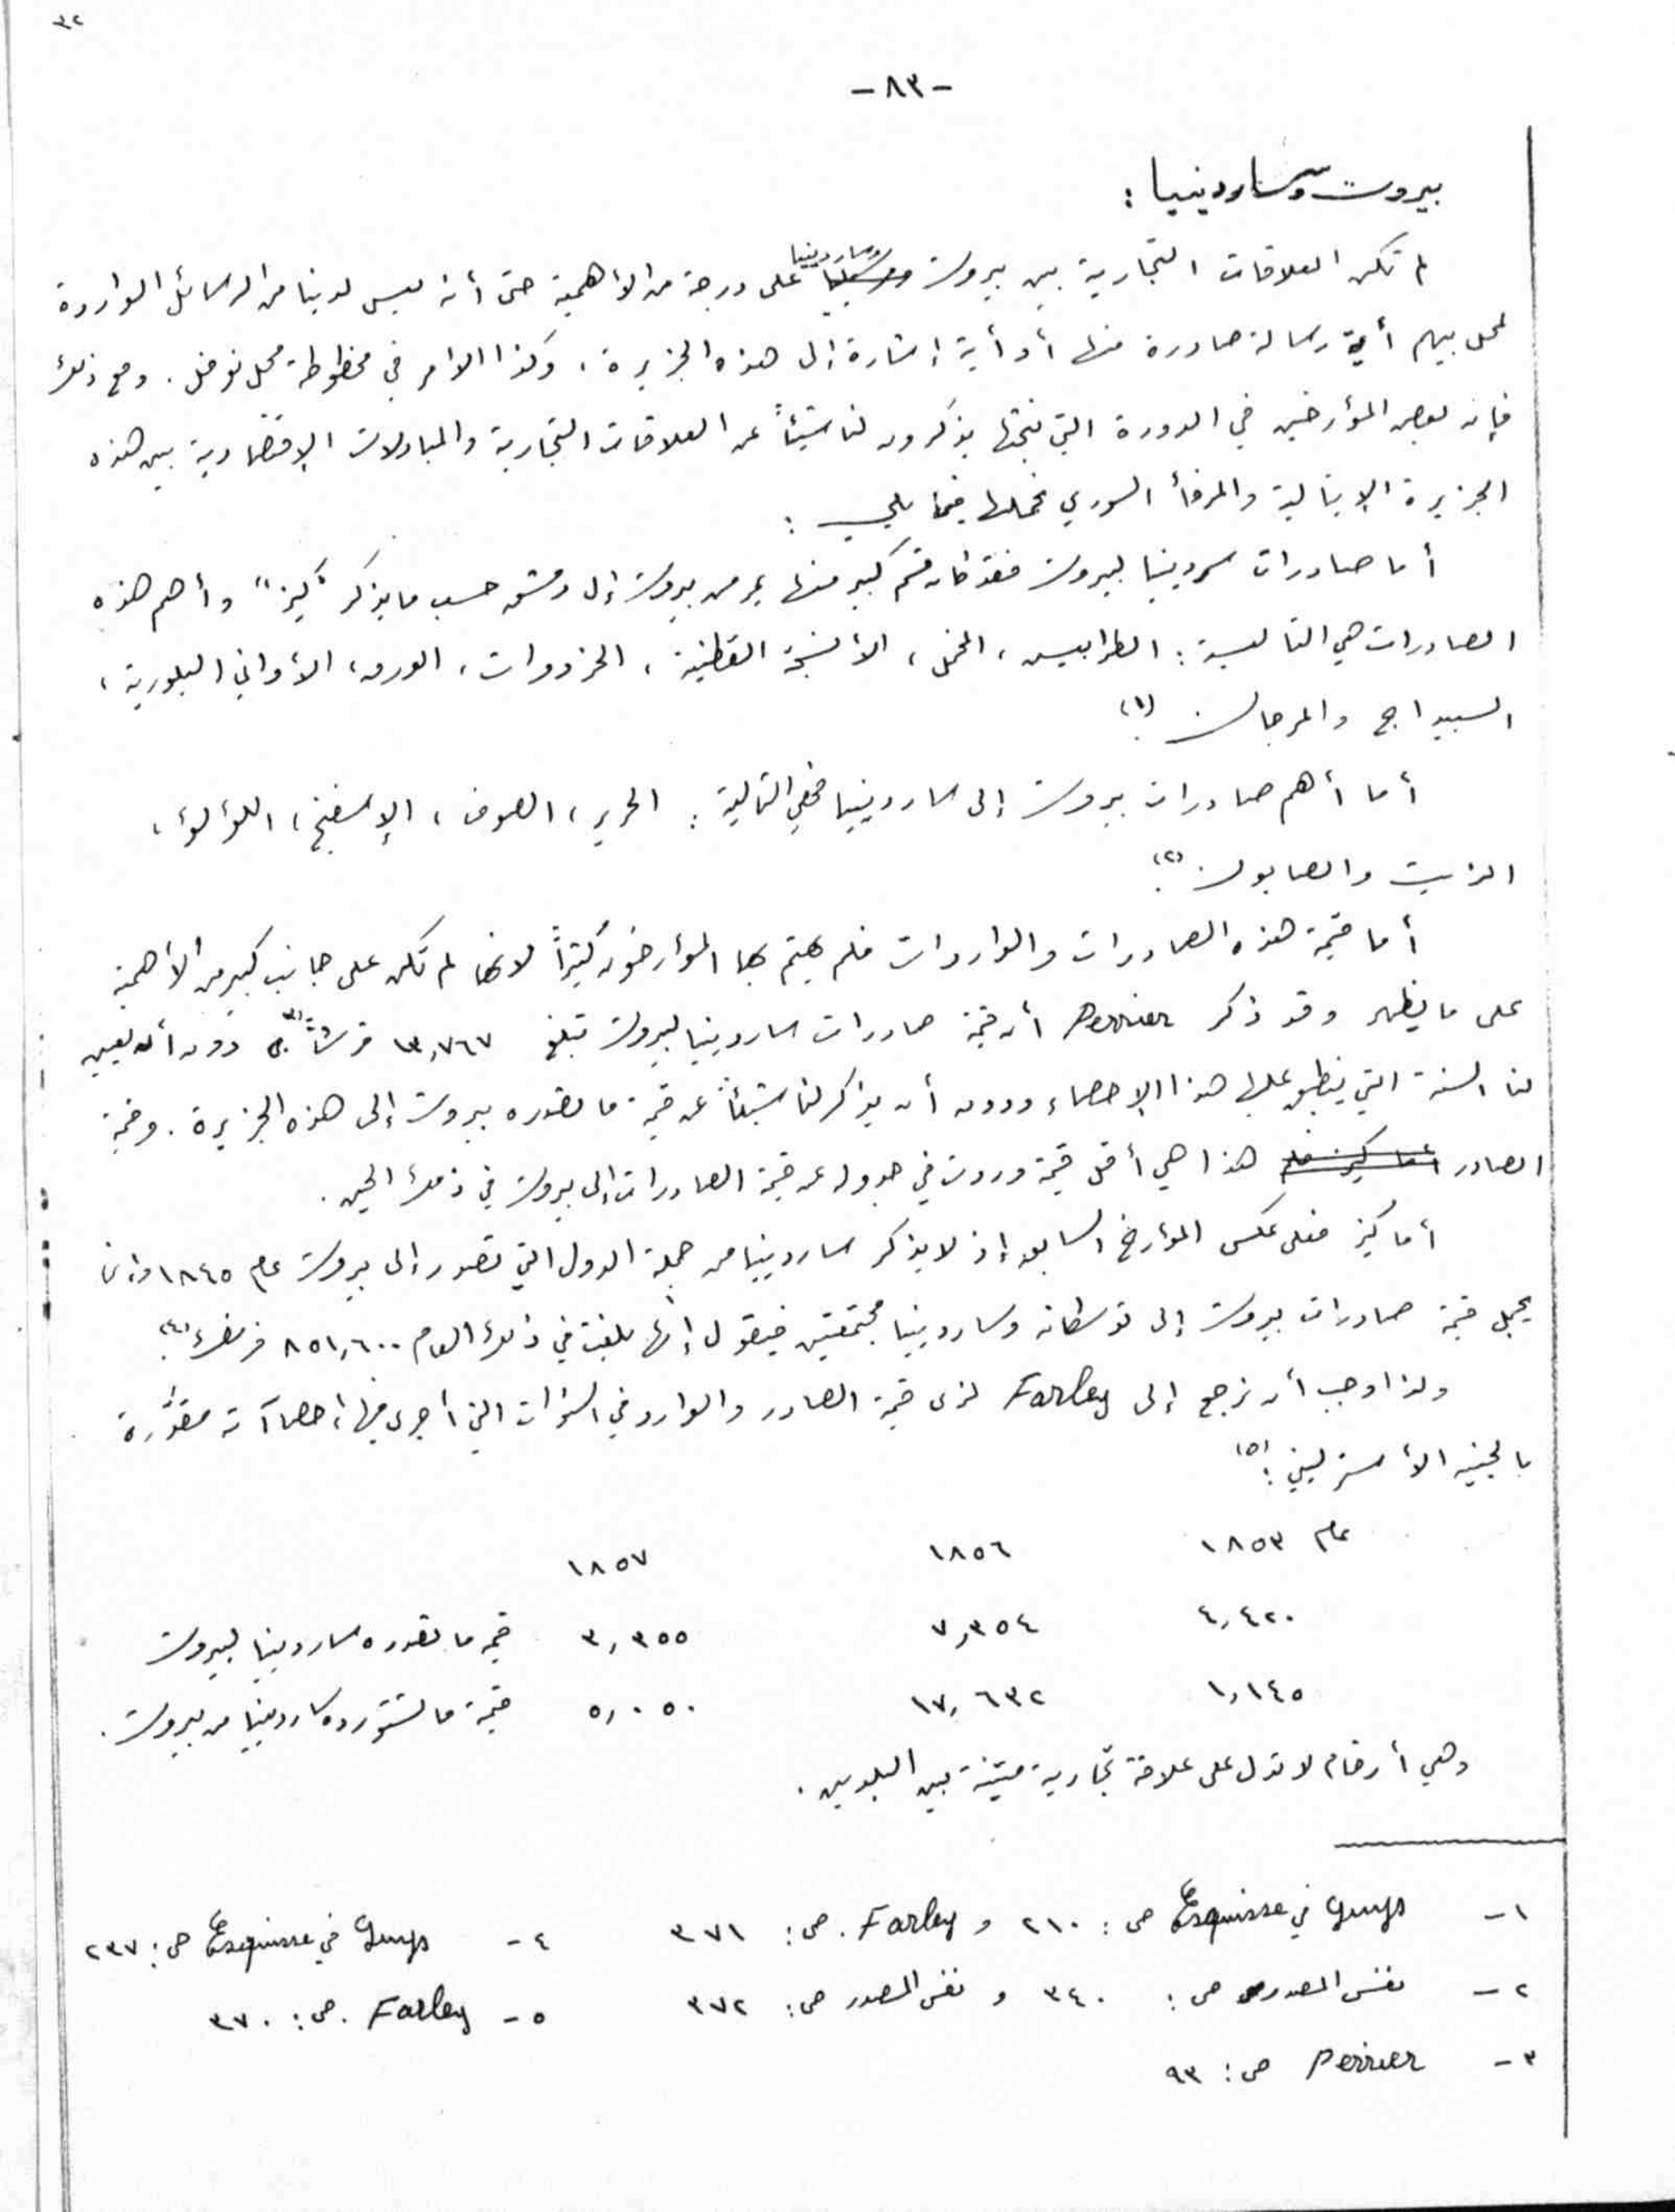 ٣٢
-٨٣-
بيروت وساردينيا :
لم تكن العلاقات التجارية بين بيروت وساردينيا على درجة من الأهمية حتى أنه ليس لدينا من الرسائل الواردة
لمحل بيهم أية رسالة صادرة منها أو أية إشارة إلى هذه الجزيرة ، وكذا الأمر في مخطوطة محل نوفل . ومع ذلك
فإن بعض المؤرخين في الدورة التي نبحثها يذكرون لنا شيئاً عن العلاقات التجارية والمبادلات الإقتصادية بين هذه
الجزيرة الإيتالية والمرفأ السوري نجملها فيما يلي :
أما صادرات سردينيا لبيروت فقد كان قسم كبير منها يمر من بيروت إلى دمشق حسب ما يذكر "كيز" وأهم هذه
الصادرات هي التالية : الطرابيس ، المخمل ، الأنسجة القطنية ، الخردوات ، الورق ، الأواني البلورية ،
السبيداج والمرجان (١).
أما أهم صادرات بيروت إلى ساردينيا فهي التالية : الحرير ، الصوف ، الإسفنج ، اللؤلؤ ،
الزيت والصابون (٢).
أما قيمة هذه الصادرات والواردات فلم يهتم بها المؤارخون كثيراً لانها لم تكن على جانب كبير من الأهمية
على ما يظهر وقد ذكر Perrier أن قيمة صادرات ساردينيا لبيروت تبلغ ١٣,٧٦٧ قرشاً (٣) دون أن يعين
لنا السنة التي ينطبق عليها هذا الإحصاء ودون أن يذكر لنا شيئاً عن قيمة ما تصدره بيروت إلى هذه الجزيرة . وقيمة
الصادر هذا هي أقل قيمة وردت في جدوله عن قيمة الصادرات إلى بيروت في ذلك الحين .
أما كيز فعلى عكس المؤارخ السابق إذ لا يذكر ساردينيا من جملة الدول التي تصدر إلى بيروت عام ١٨٤٥ وإنما
يجمل قيمة صادرات بيروت إلى توسكانه وساردينيا مجتمعتين فيقول إنها بلغت في ذلك العام ٨٥١,٦٠٠ فرنك (٤).
ولذا وجب أن نرجع إلى Farley لنرى قيمة الصادر والوارد في السنوات التي أجرى فيها إحصاآته مقدَّرة
بالجنيه الأسترليني (٥):
عام ١٨٥٣ ١٨٥٦ ١٨٥٧
٤,٤٢٠ ٧,٣٥٤ ٣,٣٥٥ قيمة ما تصدره ساردينيا لبيروت
١,١٤٥ ١٧,٦٣٢ ٥,٠٥٠ قيمة ما تستورده ساردينيا من بيروت .
وهي أرقام لا تدل على علاقة تجارية متينة بين البلدين .
١- Guys في Esquisse ص : ٢١٠ و Farley . ص : ٣٧١
٢- نفس المصدر ص : ٣٤٠ و نفس المصدر ص : ٣٧٢
٣- Perrier ص : ٩٣
٤- Guys في Esquisse ص : ٢٣٧
٥- Farley . ص : ٣٧٠